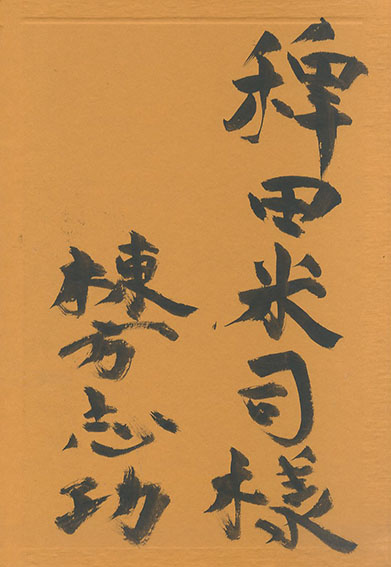 稗田米司様
棟方志功